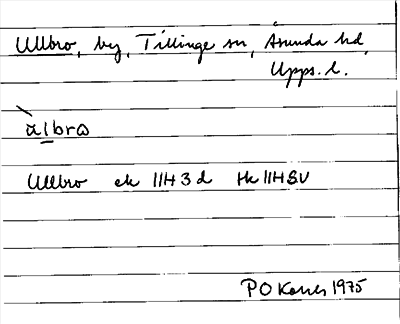 Ullbro, by, Tillinge sn, Åsunda hd,
Upps. l.
àlbrω
Ullbro ek 11H 3 d Hk 11H SV
P O 1975